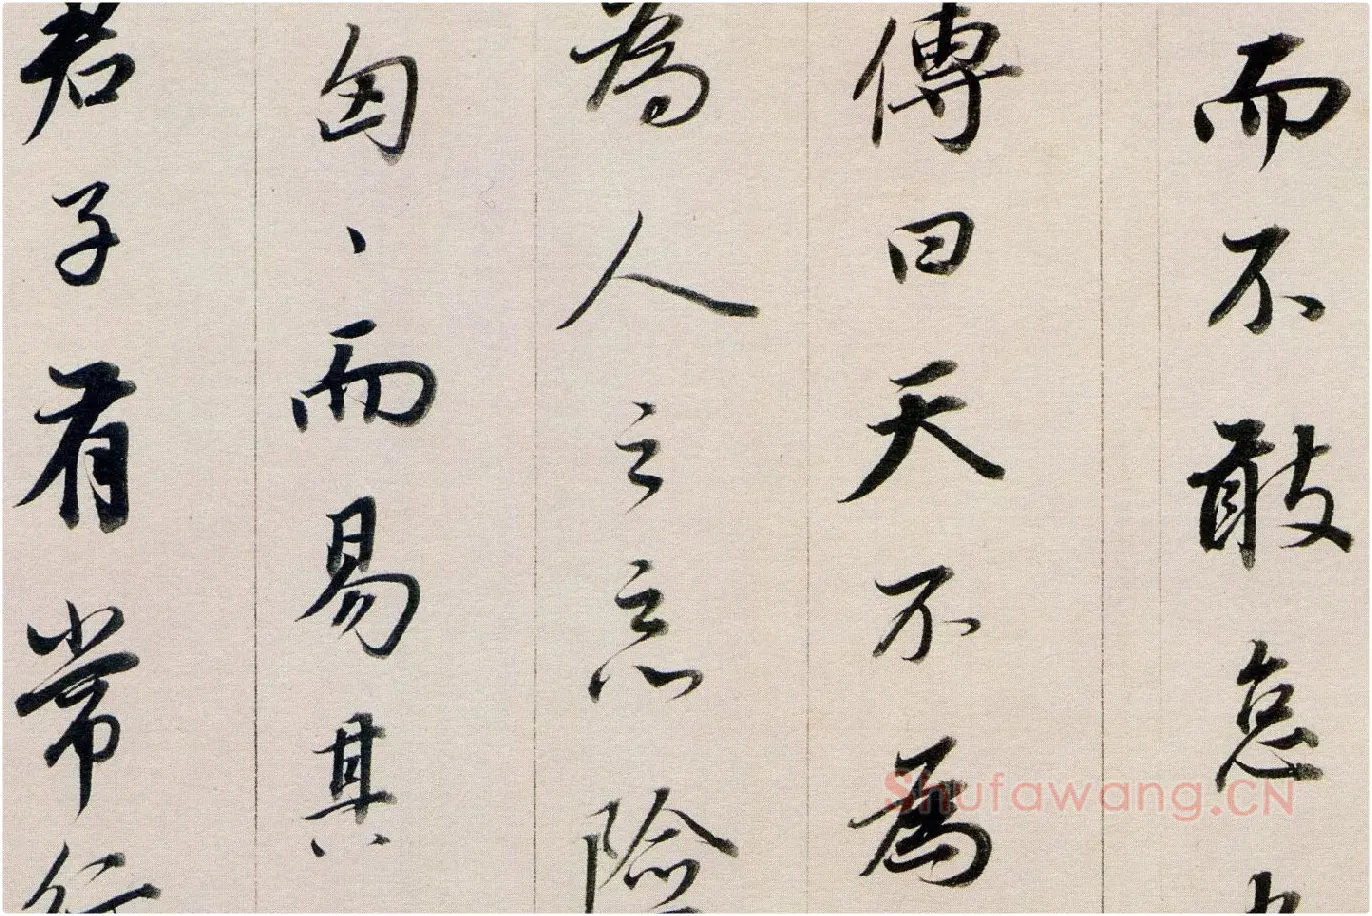 而不敢怠
傳曰天不為
為人之惡險
匈、而易其
君子有常行
Shufawang.CN